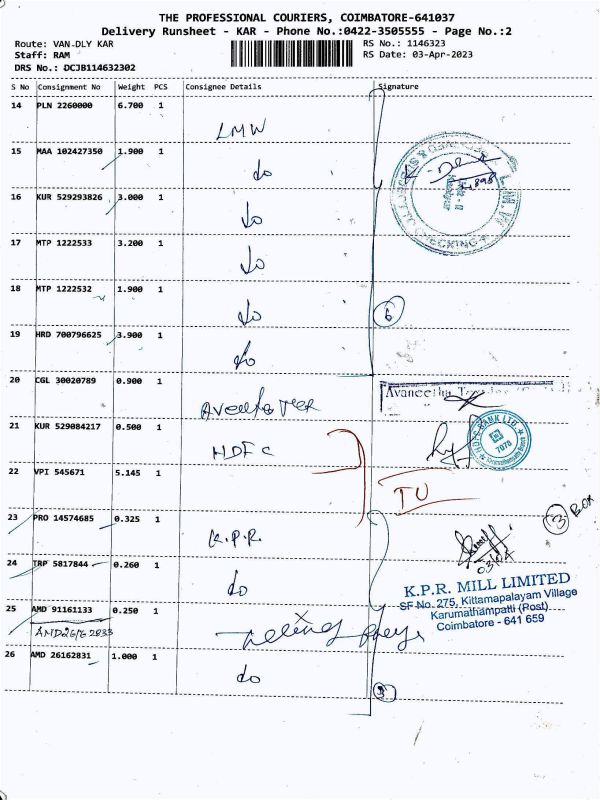 THE PROFESSIONAL COURIERS, COIMBATORE-641037
Delivery Runsheet - KAR - Phone No.:0422-3505555 - Page No.:2
Route: VAN DLY KAR
RS No.: 1146323
Staff: RAM
RS Date: 03-Apr-2023
DRS No.: DCJB114632302
S No Consignment No Weight PCS Consignee Details Signature
14 PLN 2260000 6.700 1
LMW
15 MAA 102427350 1.900 1
do
16 KUR 529293826 3.000 1
do
17 MTP 1222533 3.200 1
do
18 MTP 1222532 1.900 1
do
6
19 HRD 700796625 3.900 1
do
20 CGL 30020789 0.900 1
Avaneetha
21 KUR 529084217 0.500 1
HDFC
HDFC BANK LTD.
7078
22 VPI 545671 5.145 1
TU
23 PRO 14574685 0.325 1
K.P.R.
3 BOX
24 TRP 5817844 0.260 1
do
K.P.R. MILL LIMITED
SF No. 275, Kittamapalayam Village
Karumathampatti (Post)
Coimbatore - 641 659
25 AMD 91161133 0.250 1
26 AMD 26162831 1.000 1
do